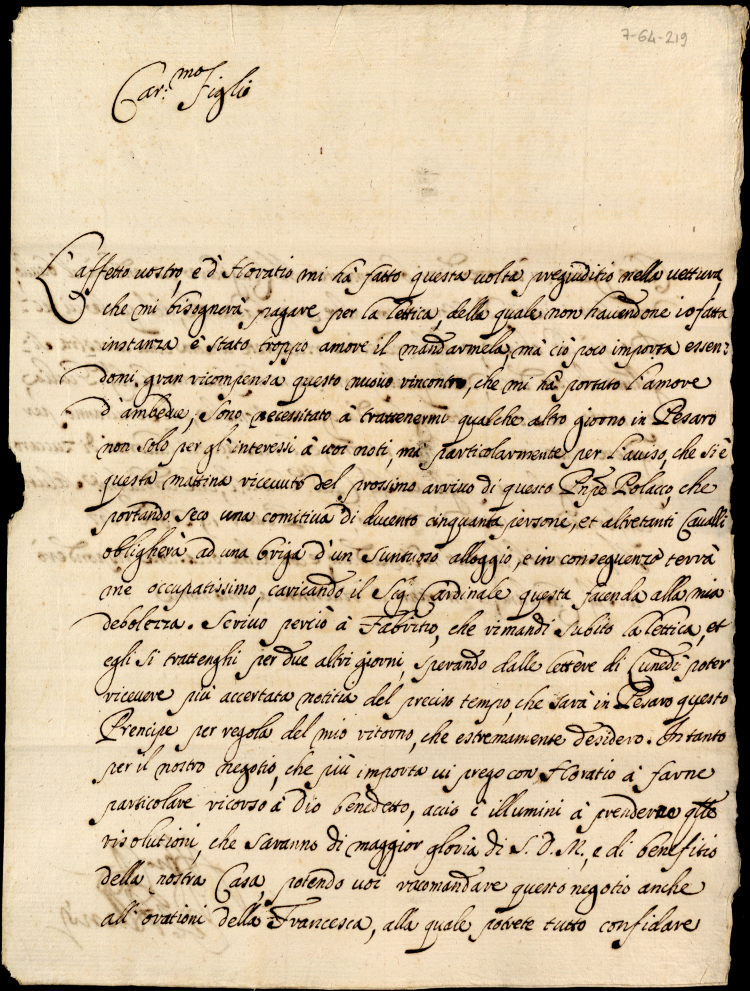 7-64-219
Car:mo figlio
L'affetto uostro, e d'Horatio mi hà fatto questa uolta pregiuditio nella uettura,
che mi bisognerà pagare per la lettica, della quale non hauendone io fatta
instanza è stato troppo amore il mandarmela, mà ciò poco importa essen:
domi gran ricompensa questo nuouo rincontro, che mi hà portato l'amore
d'ambedue, Sono necessitato à trattenermi qualche altro giorno in Pesaro
non solo per gl'interessi à uoi noti, mà particolarmente per l'auiso, che si è
questa mattina riceuuto del prossimo arriuo di questo Pnpe Polacco, che
portando seco una comitiua di ducento cinquanta persone, et altretanti Caualli
obligherà ad una briga d'un suntuoso alloggio, e in conseguenza terrà
me occupatissimo, caricando il Sigr Cardinale questa facenda alla mia
debolezza. Scriuo perciò à Fabritio, che rimandi subito la lettica, et
egli si trattenghi per due altri giorni, sperando dalle lettere di Lunedì poter
riceuere più accertata notitia del preciso tempo, che sarà in Pesaro questo
Prencipe per regola del mio ritorno, che estremamente desidero. In tanto
per il nostro negotio, che più importa ui prego con Horatio à farne
particolare ricorso à Dio benedetto, acciò c'illumini à prenderne qlle
risolutioni, che saranno di maggior gloria di S. D. M., e di benefitio
della nostra Casa, potendo uoi racomandare questo negotio anche
all'orationi della Francesca, alla quale potrete tutto confidare